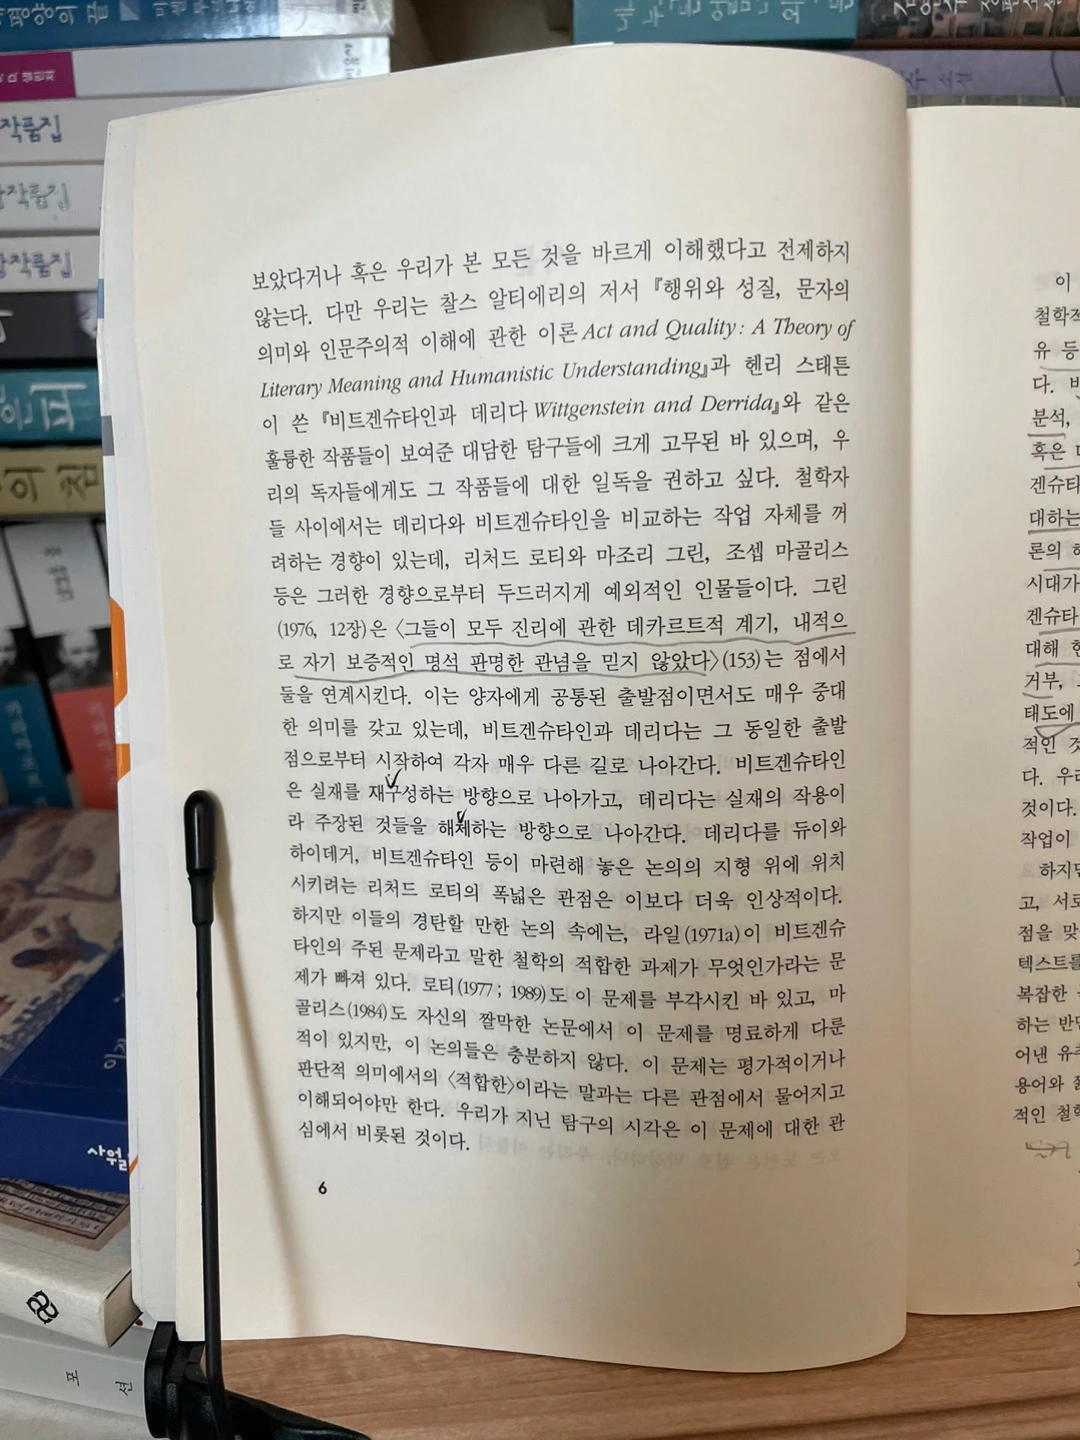 작품집
작품집
작품집
보았다거나 혹은 우리가 본 모든 것을 바르게 이해했다고 전제하지
않는다. 다만 우리는 찰스 알티에리의 저서 『행위와 성질, 문자의
의미와 인문주의적 이해에 관한 이론 Act and Quality : A Theory of
Literary Meaning and Humanistic Understanding』과 헨리 스태튼
이 쓴 『비트겐슈타인과 데리다 Wittgenstein and Derrida』와 같은
훌륭한 작품들이 보여준 대담한 탐구들에 크게 고무된 바 있으며, 우
리의 독자들에게도 그 작품들에 대한 일독을 권하고 싶다. 철학자
들 사이에서는 데리다와 비트겐슈타인을 비교하는 작업 자체를 꺼
려하는 경향이 있는데, 리처드 로티와 마조리 그린, 조셉 마골리스
등은 그러한 경향으로부터 두드러지게 예외적인 인물들이다. 그린
(1976, 12장)은 〈그들이 모두 진리에 관한 데카르트적 계기, 내적으
로 자기 보증적인 명석 판명한 관념을 믿지 않았다〉(153)는 점에서
둘을 연계시킨다. 이는 양자에게 공통된 출발점이면서도 매우 중대
한 의미를 갖고 있는데, 비트겐슈타인과 데리다는 그 동일한 출발
점으로부터 시작하여 각자 매우 다른 길로 나아간다. 비트겐슈타인
은 실재를 재구성하는 방향으로 나아가고, 데리다는 실재의 작용이
라 주장된 것들을 해체하는 방향으로 나아간다. 데리다를 듀이와
하이데거, 비트겐슈타인 등이 마련해 놓은 논의의 지형 위에 위치
시키려는 리처드 로티의 폭넓은 관점은 이보다 더욱 인상적이다.
하지만 이들의 경탄할 만한 논의 속에는, 라일(1971a)이 비트겐슈
타인의 주된 문제라고 말한 철학의 적합한 과제가 무엇인가라는 문
제가 빠져 있다. 로티(1977 ; 1989)도 이 문제를 부각시킨 바 있고, 마
골리스(1984)도 자신의 짤막한 논문에서 이 문제를 명료하게 다룬
적이 있지만, 이 논의들은 충분하지 않다. 이 문제는 평가적이거나
판단적 의미에서의 〈적합한〉이라는 말과는 다른 관점에서 물어지고
이해되어야만 한다. 우리가 지닌 탐구의 시각은 이 문제에 대한 관
심에서 비롯된 것이다.
6
이
철학적
유 등
다.
분석,
혹은
겐슈타
대하는
론의
시대가
겐슈타
대해
거부,
태도에
적인
다. 우리
것이다.
작업이
하지만
고, 서로
점을 맞
텍스트를
복잡한
하는 반면
어낸 유추
용어와
적인 철학
소설
의 침
사월
포 선